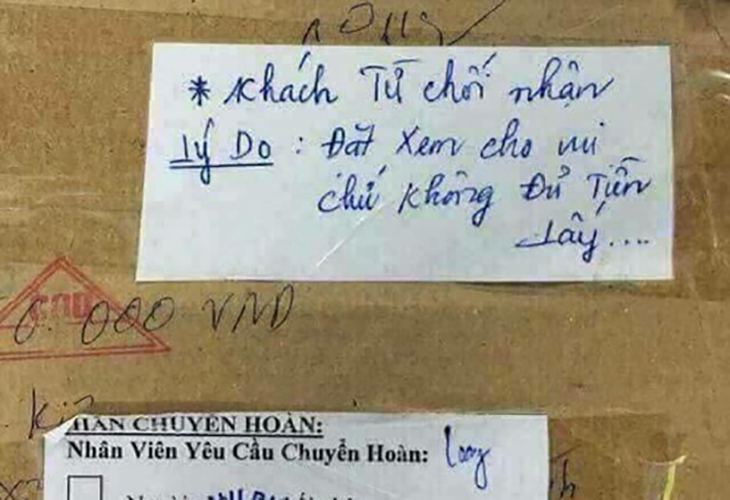 * Khách Từ chối nhận
Lý Do : Đặt xem cho vui
chứ không Đủ Tiền
Lấy....
000 VND
HÀN CHUYỂN HOÀN:
Nhân Viên Yêu Cầu Chuyển Hoàn: Long